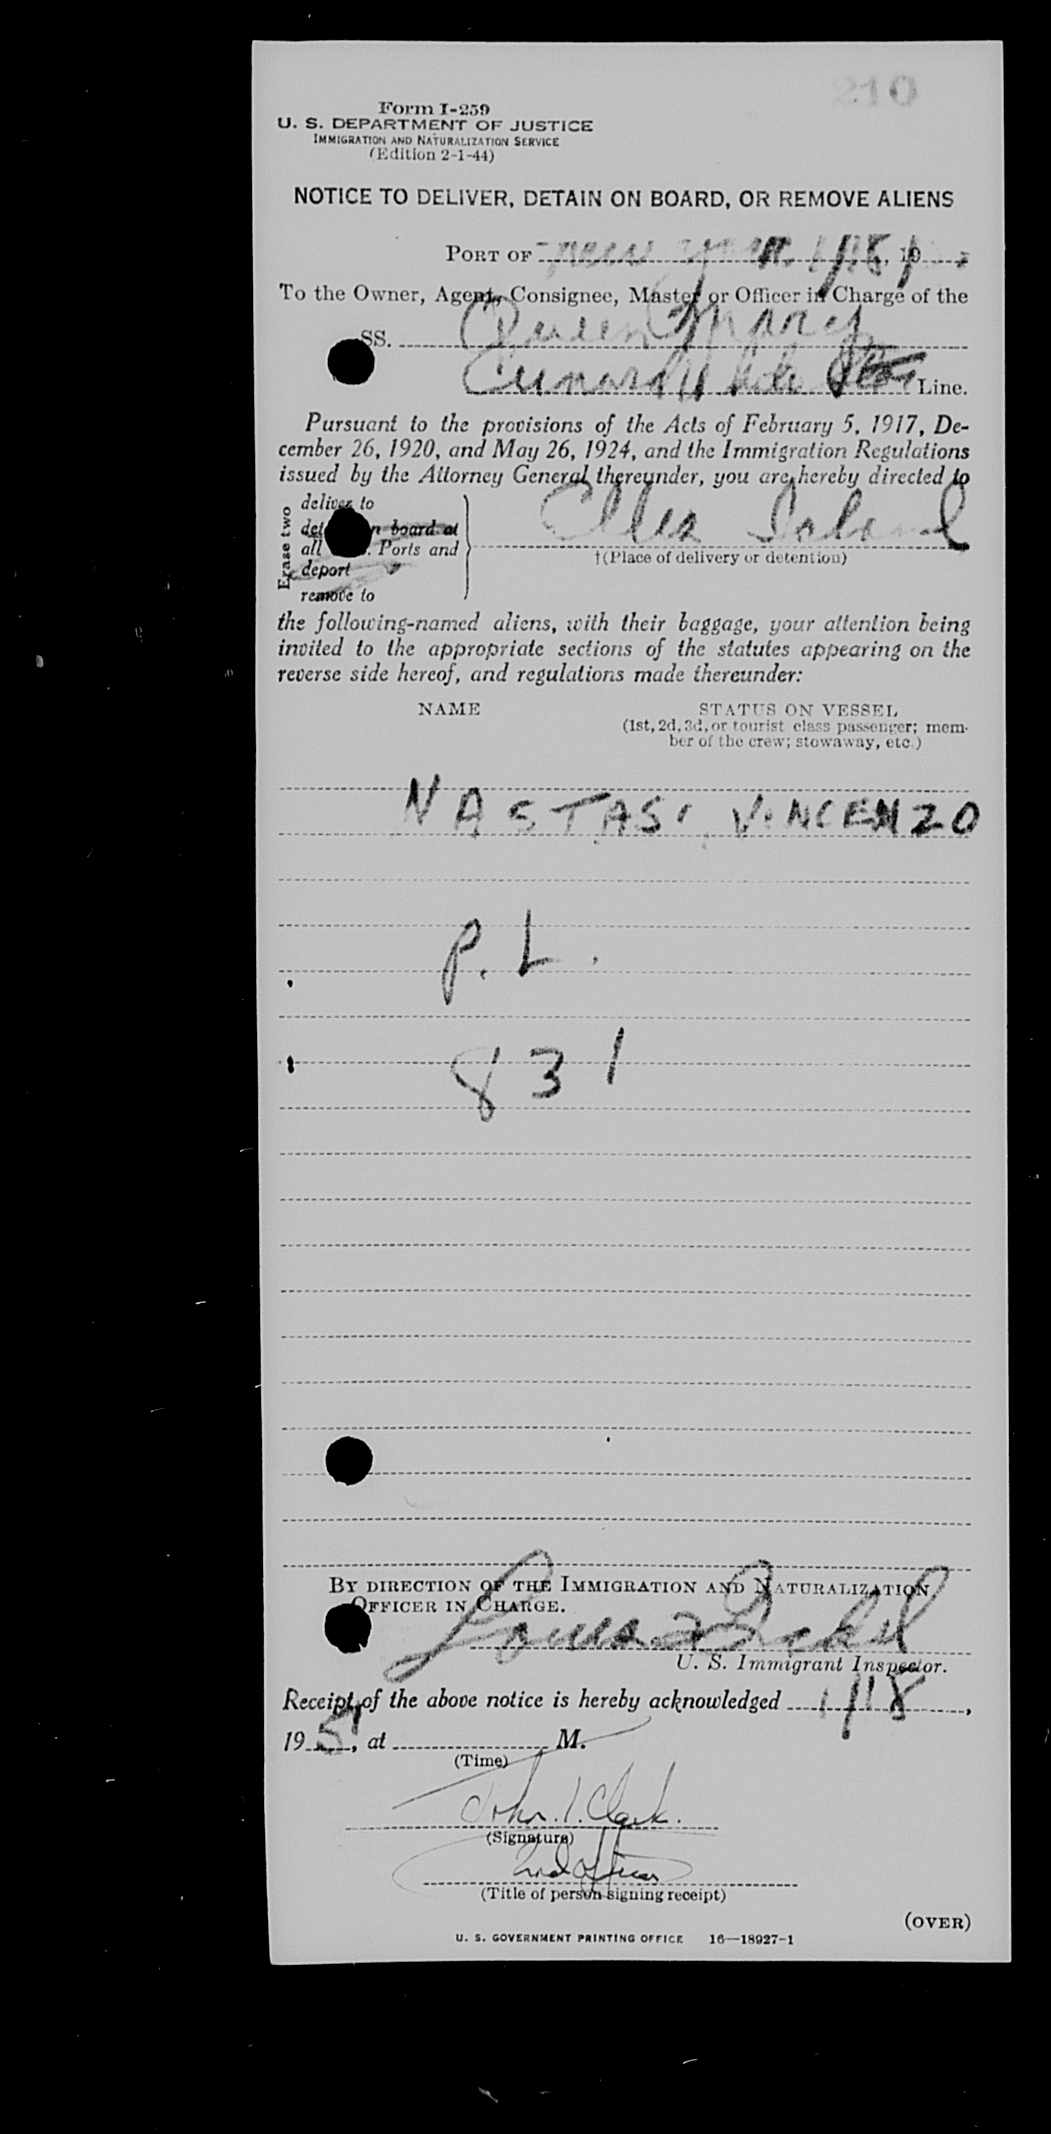 210
Form I-259
U. S. DEPARTMENT OF JUSTICE
IMMIGRATION AND NATURALIZATION SERVICE
(Edition 2-1-44)
NOTICE TO DELIVER, DETAIN ON BOARD, OR REMOVE ALIENS
PORT OF New York 1/18/ 19
To the Owner, Agent, Consignee, Master or Officer in Charge of the
SS. Queen Mary
Cunard White Star Line.
Pursuant to the provisions of the Acts of February 5, 1917, De-
cember 26, 1920, and May 26, 1924, and the Immigration Regulations
issued by the Attorney General thereunder, you are hereby directed to
Erase two
deliver to
on board at
all Ports and
deport
remove to
Ellis Island
†(Place of delivery or detention)
the following-named aliens, with their baggage, your attention being
invited to the appropriate sections of the statutes appearing on the
reverse side hereof, and regulations made thereunder:
NAME STATUS ON VESSEL
(1st, 2d, 3d, or tourist class passenger; mem-
ber of the crew; stowaway, etc.)
NASTASI, VINCENZO
P. L.
831
BY DIRECTION OF THE IMMIGRATION AND NATURALIZATION
OFFICER IN CHARGE.
Louis
U. S. Immigrant Inspector.
Receipt of the above notice is hereby acknowledged 1/18,
1951, at M.
(Time)
John. I. Clark.
(Signature)
2nd Officer
(Title of person signing receipt)
(OVER)
U. S. GOVERNMENT PRINTING OFFICE 16—18927-1